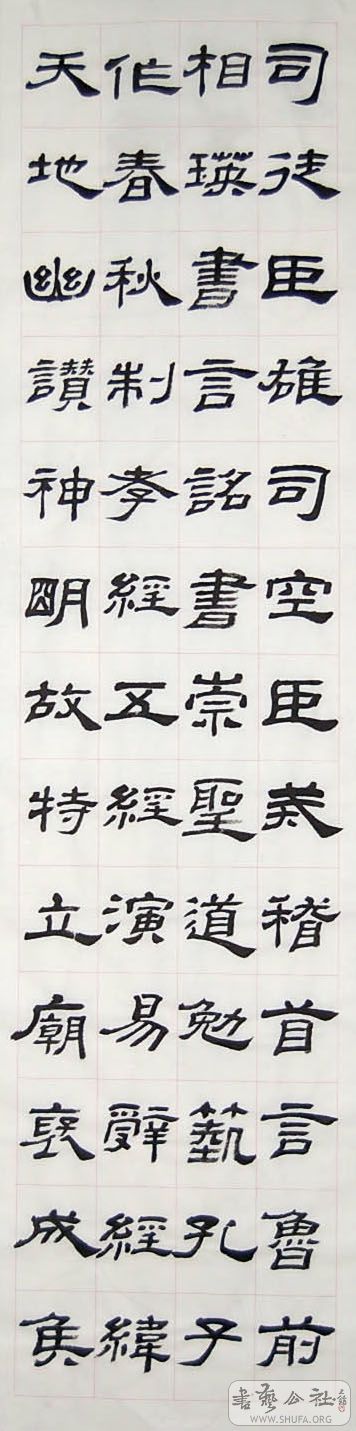 司徒臣雄司空臣戒稽首言魯前
相瑛書言詔書崇聖道勉藝孔子
作春秋制孝經五經演易辭經緯
天地幽讚神明故特立廟褒成侯
書藝公社
WWW.SHUFA.ORG